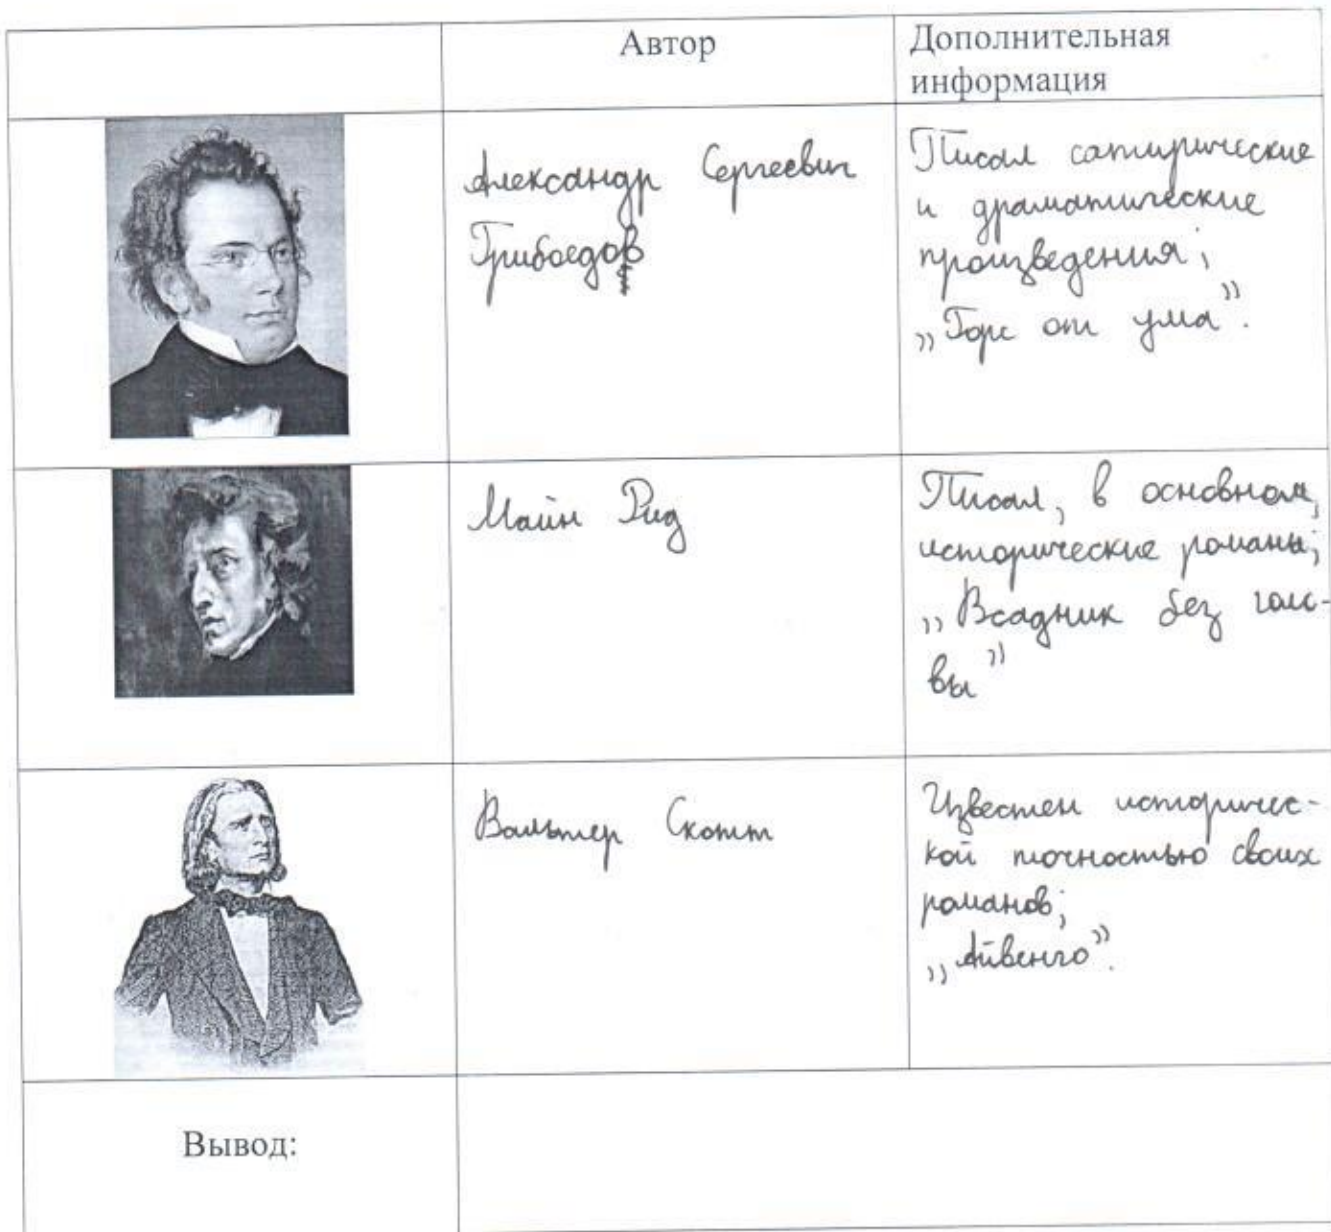 Автор
Дополнительная
информация
Александр Сергеевич
Грибоедов
Писал сатирические
и драматические
произведения;
„Горе от ума”.
Майн Рид
Писал, в основном,
исторические романы;
„Всадник без голо-
вы”
Вальтер Скотт
Известен историчес-
кой точностью своих
романов;
„Айвенго”.
Вывод: